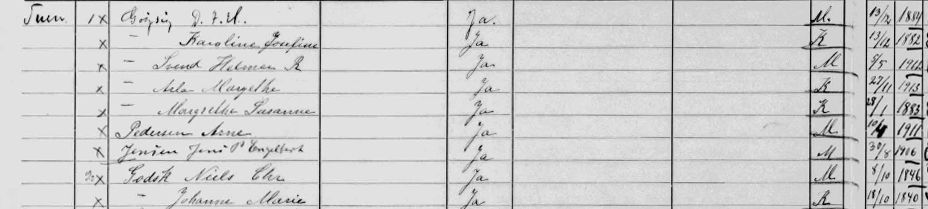 Tuen 1 x Gørgsig D. F. H. Ja. M. 13/12 1884
x — Karoline Josefine Ja K 13/12 1882
x — Svend Helmer R Ja M 9/5 1912
x — Asla Margethe Ja K 27/11 1913
x — Margrethe Susanne Ja K 28/1 1883
x Pedersen Arne Ja M 1911
x Jensen Jens P. Engelbert Ja M 30/8 1906
x Godsk Niels Chr Ja M 8/10 1846
x — Johanne Marie Ja K 18/10 1840